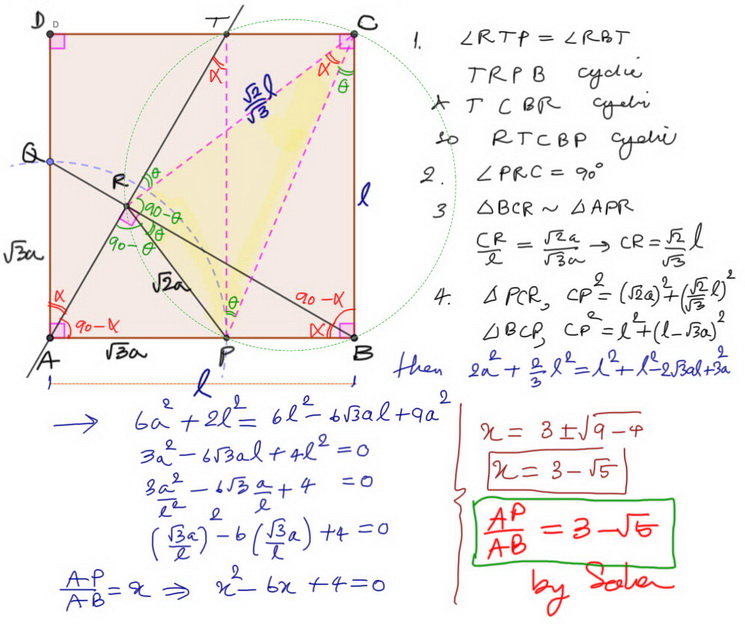 D D T C
α α θ
√2/√3 l
Q
R θ
90-θ
θ
90-θ
l
√3a √2a
α θ 90-α
90-α α
A √3a P B
l
1. ∠RTP = ∠RBT
TRPB cyclic
∧ TCBR cyclic
so RTCBP cyclic
2. ∠PRC = 90°
3 △BCR ~ △APR
CR/l = √2a/√3a → CR = √2/√3 l
4. △PCR, CP² = (√2a)²+(√2/√3 l)²
△BCP, CP² = l²+(l-√3a)²
then 2a² + 2/3 l² = l²+l²-2√3al+3a²
→ 6a²+2l² = 6l²-6√3al+9a²
3a²-6√3al+4l² = 0
3a²/l² - 6√3 a/l + 4 = 0
(√3a/l)² - 6(√3a/l) + 4 = 0
AP/AB = x ⇒ x²-6x+4 = 0
x = 3 ± √9-4
x = 3-√5
AP/AB = 3-√5
by